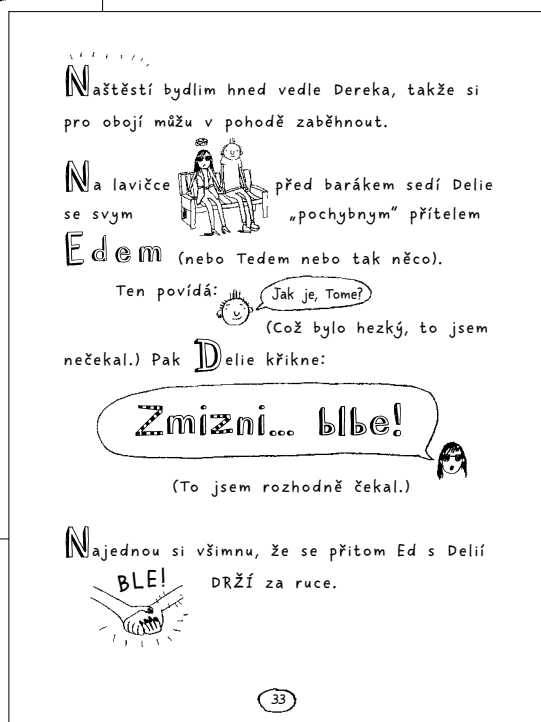 Naštěstí bydlim hned vedle Dereka, takže si
pro obojí můžu v pohodě zaběhnout.
Na lavičce před barákem sedí Delie
se svym „pochybnym" přítelem
Edem (nebo Tedem nebo tak něco).
Ten povídá: Jak je, Tome?
(Což bylo hezký, to jsem
nečekal.) Pak Delie křikne:
Zmizni... blbe!
(To jsem rozhodně čekal.)
Najednou si všimnu, že se přitom Ed s Delií
BLE! DRŽÍ za ruce.
33